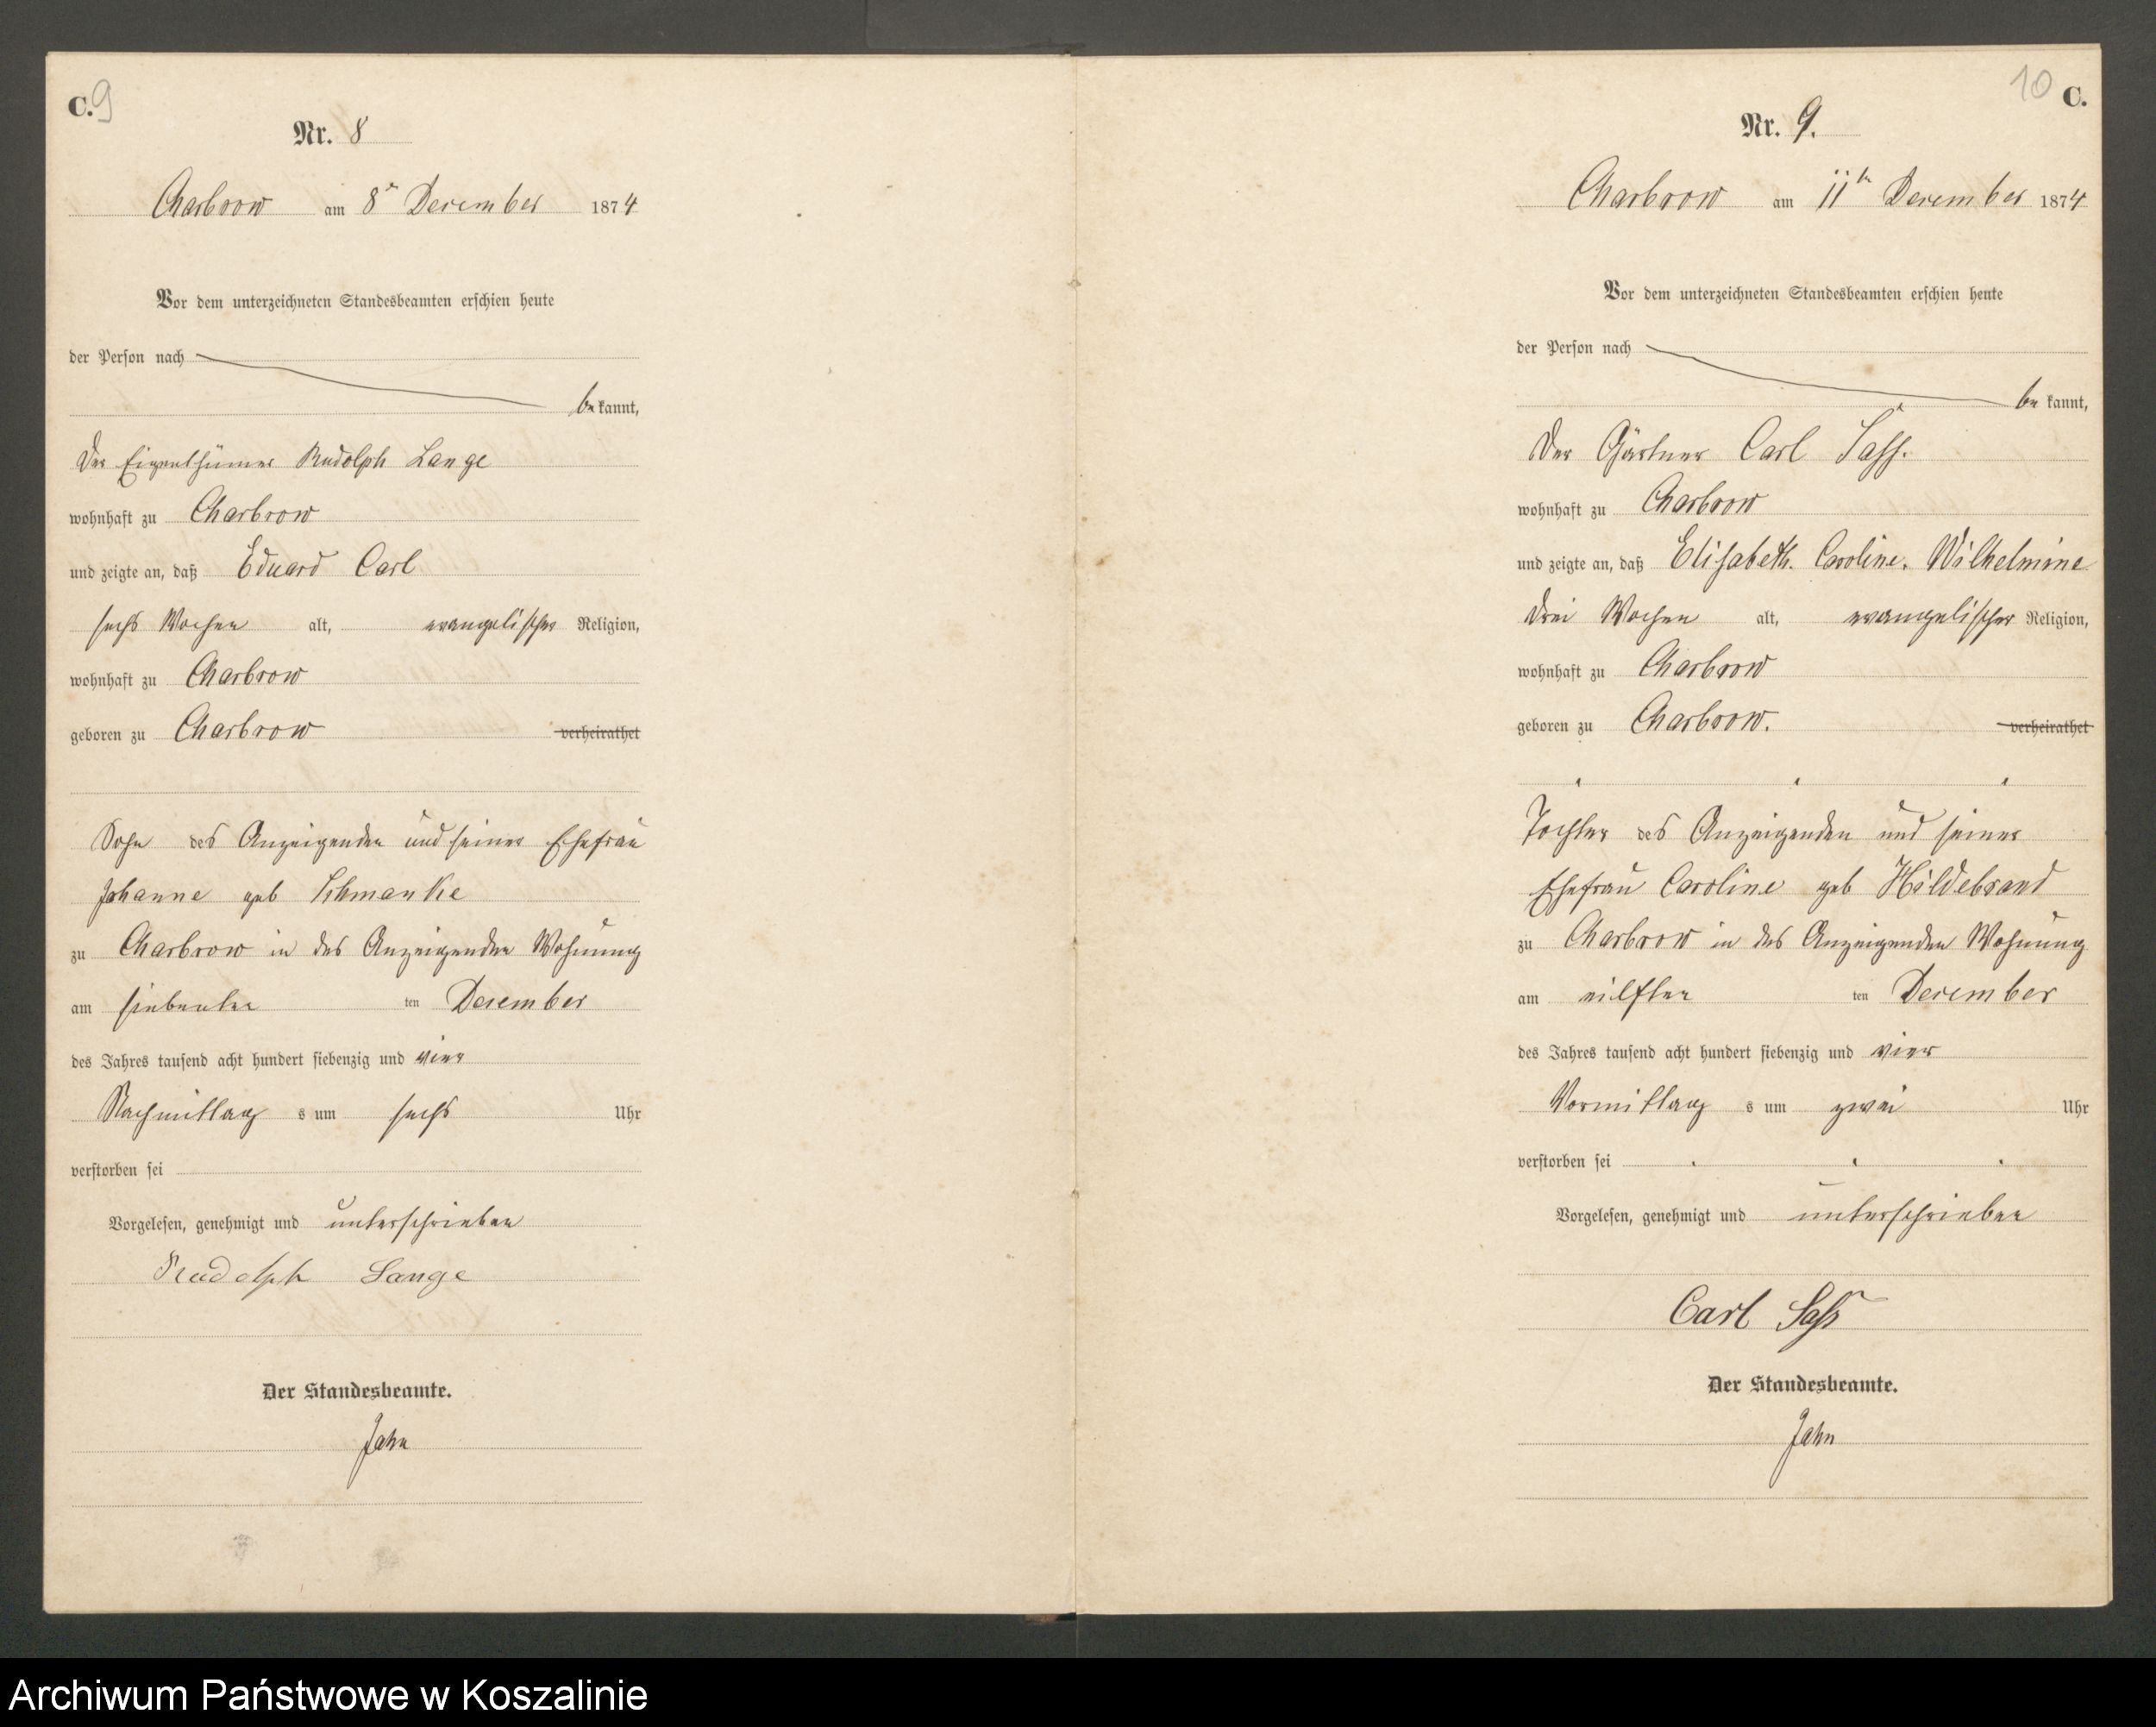 C. 9
Nr. 8
Charbrow am 8n December 1874
Vor dem unterzeichneten Standesbeamten erschien heute
der Person nach
bekannt,
Der Eigenthümer Rudolph Lange
wohnhaft zu Charbrow
und zeigte an, daß Eduard Carl
sechs Wochen alt, evangelischer Religion,
wohnhaft zu Charbrow
geboren zu Charbrow verheirathet
Sohn des Anzeigenden und seiner Ehefrau
Johanne geb Schmanke
zu Charbrow in des Anzeigenden Wohnung
am siebenten ten December
des Jahres tausend acht hundert siebenzig und vier
Nachmittag s um sechs Uhr
verstorben sei
Vorgelesen, genehmigt und unterschrieben
Rudolph Lange
Der Standesbeamte.
Jahn
10 C.
Nr. 9.
Charbrow am 11tn December 1874
Vor dem unterzeichneten Standesbeamten erschien heute
der Person nach
bekannt,
Der Gärtner Carl Saß.
wohnhaft zu Charbrow
und zeigte an, daß Elisabeth. Caroline. Wilhelmine
drei Wochen alt, evangelischer Religion,
wohnhaft zu Charbrow
geboren zu Charbrow. verheirathet
Tochter des Anzeigenden und seiner
Ehefrau Caroline geb Hildebrand
zu Charbrow in des Anzeigenden Wohnung
am eilften ten December
des Jahres tausend acht hundert siebenzig und vier
Vormittag s um zwei Uhr
verstorben sei
Vorgelesen, genehmigt und unterschrieben
Carl Saß
Der Standesbeamte.
Jahn
Archiwum Państwowe w Koszalinie